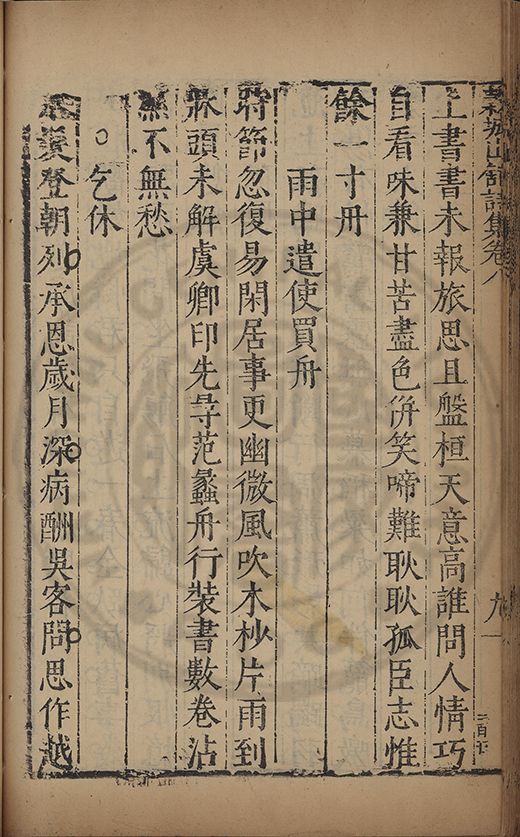 山館詩集卷八
九
上書書未報旅思且盤桓天意高誰問人情巧
自看味兼甘苦盡色併笑啼難耿耿孤臣志惟
餘一寸丹
雨中遣使買舟
時節忽復易閑居事更幽微風吹木杪片雨到
牀頭未解虞卿印先尋范蠡舟行裝書數卷沽
無不無愁
○乞休
髮登朝列承恩歲月深病酬吳客問思作越